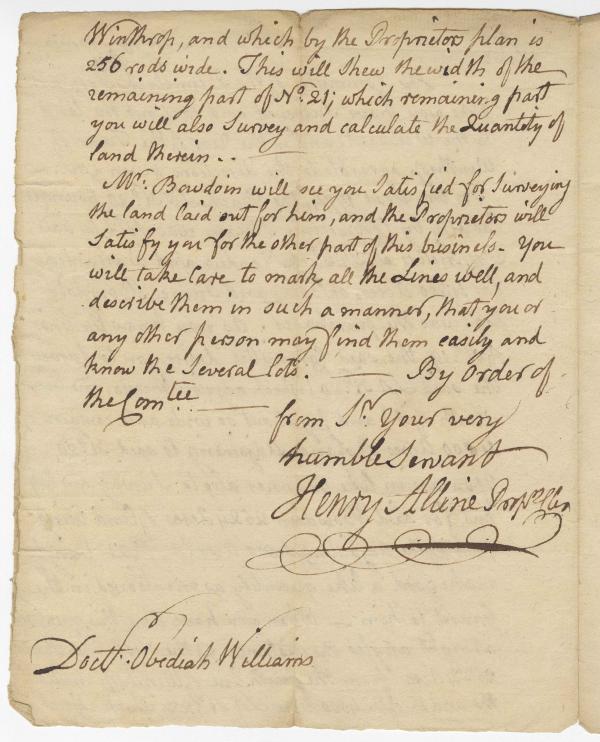 Winthrop, and which by the Proprietors plan is
256 rods wide. This will shew the width of the
remaining part of No. 21; which remaining part
you will also Survey and calculate the Quantity of
land therein. . —
Mr. Bowdoin will see you Satisfied for Surveying
the land laid out for him, and the Proprietors will
Satisfy you for the other part of this business. You
will take Care to mark all the Lines well, and
describe them in such a manner, that you or
any other person may find them easily and
know the Several lots. — By Order of
the Comtee —
from Sr. Your very
humble Servant
Henry Alline Proprs Clerk
Doctr. Obediah Williams